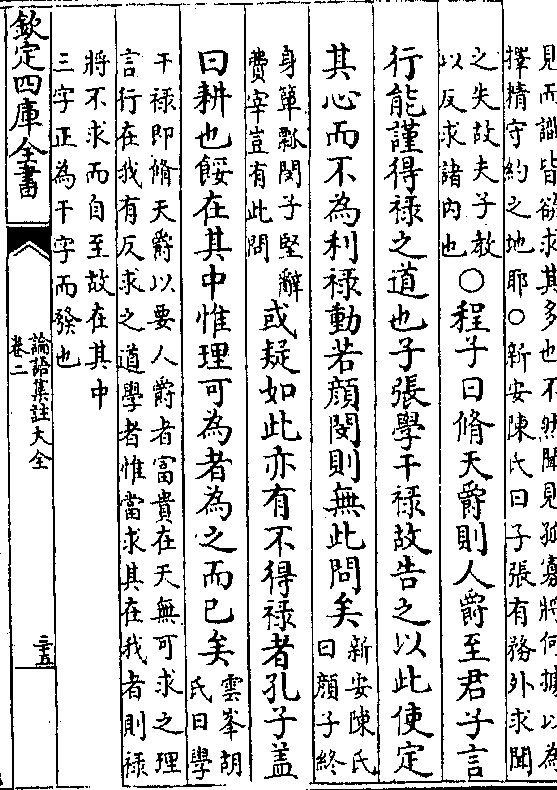 見而識皆欲求其多也不然聞見孤寡將何據以為
擇精守約之地耶○新安陳氏曰子張有務外求聞
之失故夫子教
以反求諸内也
○程子曰脩天爵則人爵至君子言
行能謹得禄之道也子張學干禄故告之以此使定
其心而不為利禄動若顔閔則無此問矣
新安陳氏
曰顔子終
身簞瓢閔子堅辭
費宰豈有此問
或疑如此亦有不得禄者孔子盖
曰耕也餒在其中惟理可為者為之而已矣
雲峯胡
氏曰學
干禄即脩天爵以要人爵者富貴在天無可求之理
言行在我有反求之道學者惟當求其在我者則禄
將不求而自至故在其中
三字正為干字而發也
欽定四庫全書
論語集註大全
卷二
三五